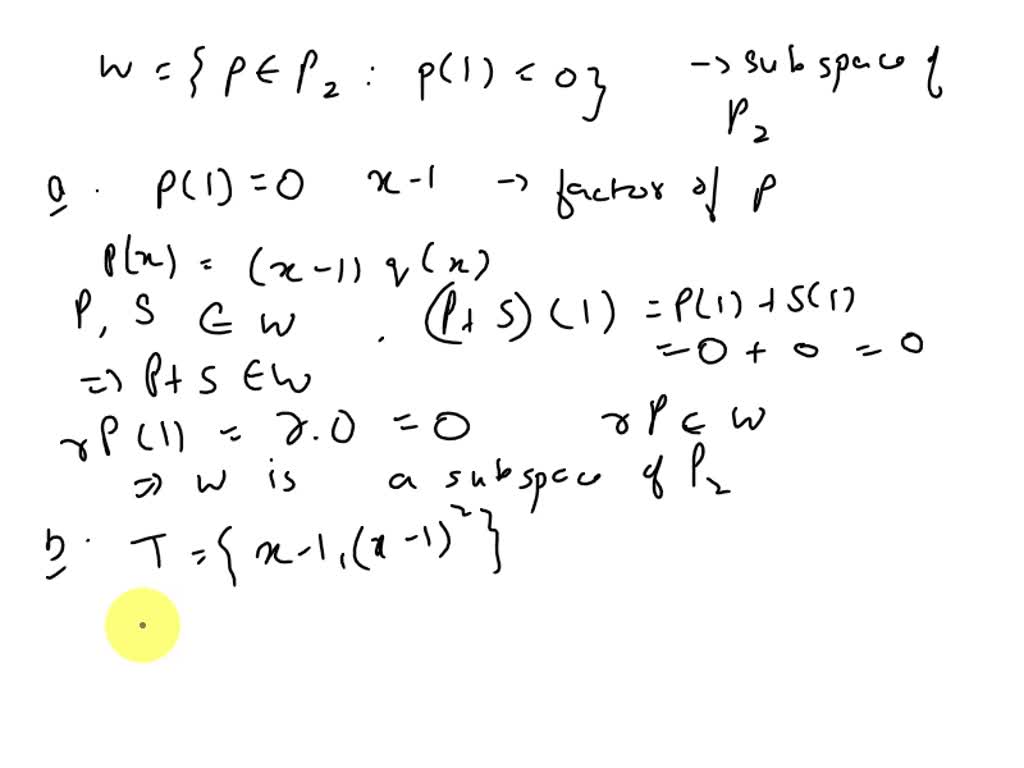 W = { p ∈ P₂ : p(1) = 0 } → subspace of P₂
a. p(1) = 0 x-1 → factor of p
p(x) = (x-1) q(x)
P, S ∈ W . (P+S)(1) = P(1) + S(1)
= 0 + 0 = 0
=> P+S ∈ W
rP(1) = r.0 = 0 rP ∈ W
=> W is a subspace of P₂
b. T = { x-1, (x-1)² }